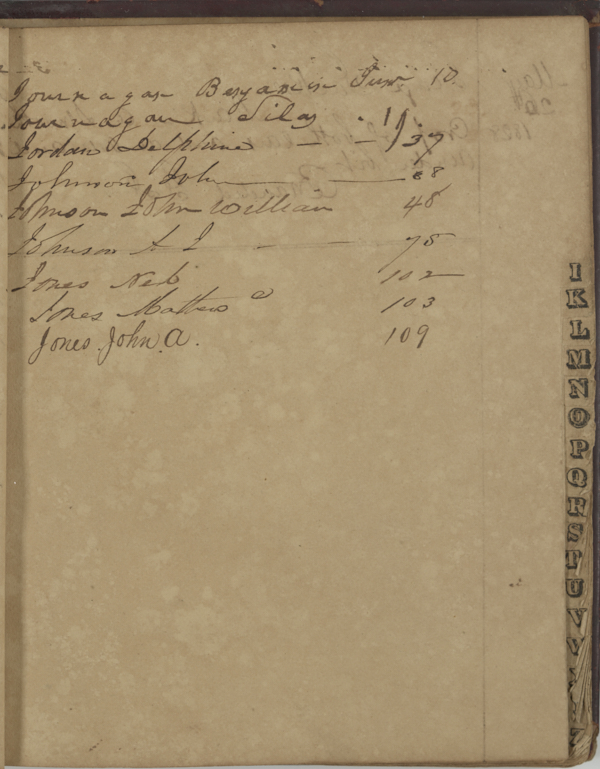 Journagan Benjamin Junr 10
Journagan Silas 11
Jordan Delphine 37
Johnson John 88
Johnson John William 48
Johnson A J 78
Jones Neb 102
Jones Mathew 103
Jones John A. 109
I
K
L
M
N
O
P
Q
R
S
T
U
V